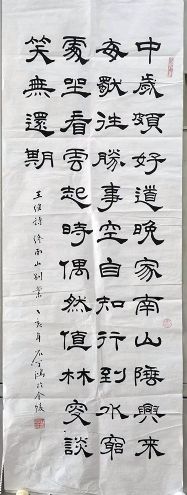 中歲頗好道晚家南山陲興來
每獨往勝事空自知行到水窮
處坐看雲起時偶然值林叟談
笑無還期
王維詩終南山別業